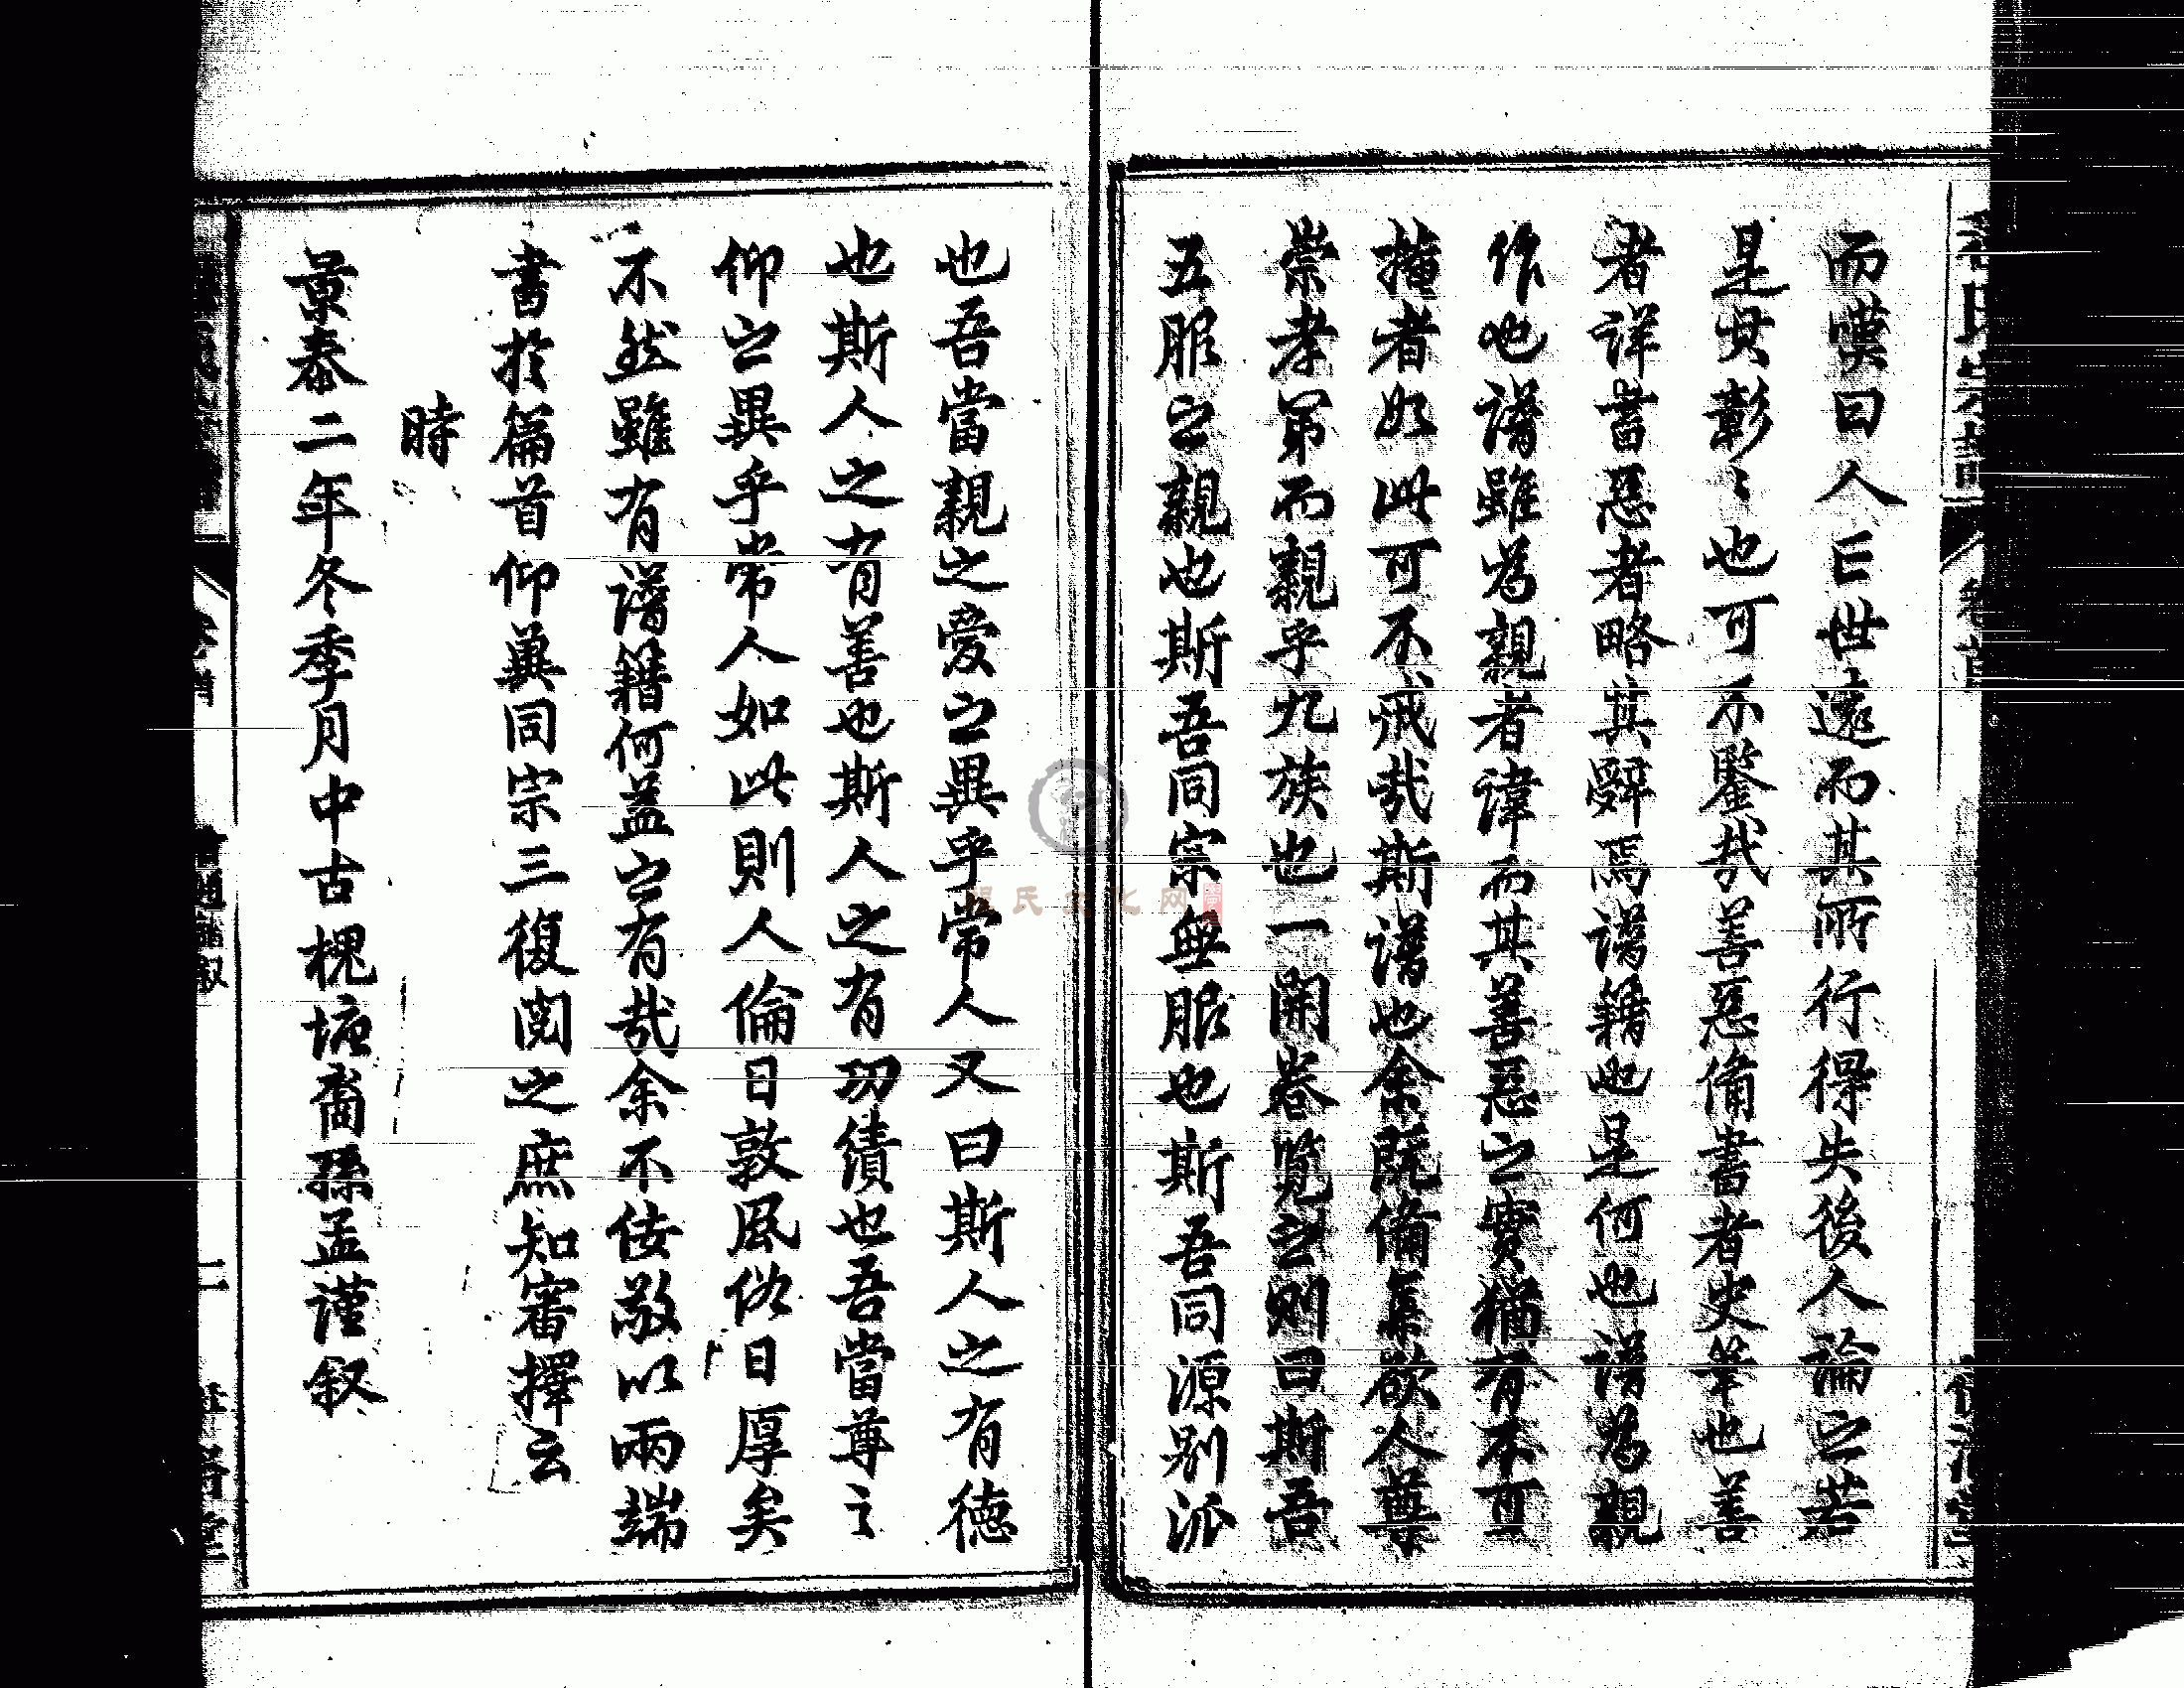 而嘆曰人亡世遠而其所行得失後人論之若
是其彰〻也可不鑒哉善惡備書者史筆也善
者詳書惡者略其辭焉譜籍也是何也譜為親
作也譜雖為親者諱而其善惡之實猶有不可
掩者如此可不戒哉斯譜也余既備集欲人尊
崇孝弟而親乎九族也一開卷覽之則曰斯吾
五服之親也斯吾同宗無服也斯吾同源別派
也吾當親之愛之異乎常人又曰斯人之有德
也斯人之有善也斯人之有功績也吾當尊之
仰之異乎常人如此則人倫日敦風俗日厚矣
不然雖有譜籍何益之有哉余不佞敬以兩端
書於篇首仰冀同宗三復閱之庶知審擇云
時
景泰二年冬季月中古槐坡裔孫孟謹叙
氏文化网